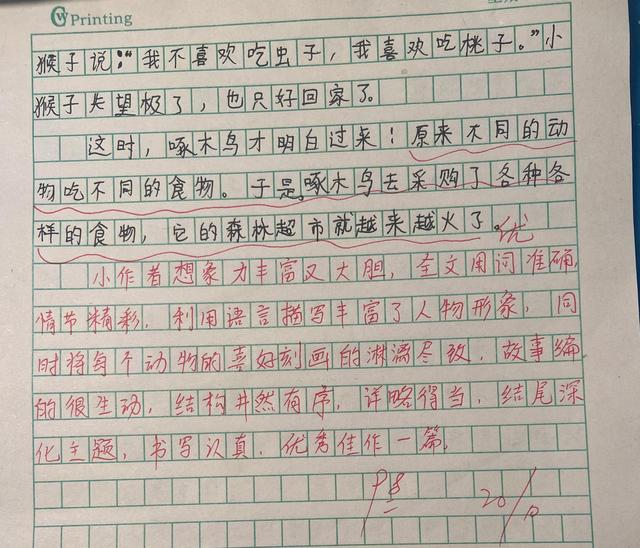 Printing
猴子说:“我不喜欢吃虫子,我喜欢吃桃子。”小
猴子失望极了,也只好回家了。
这时,啄木鸟才明白过来!原来不同的动
物吃不同的食物。于是,啄木鸟去采购了各种各
样的食物,它的森林超市就越来越火了。优
小作者想象力丰富又大胆,全文用词准确,
情节精彩,利用语言描写丰富了人物形象,同
时将每个动物的喜好刻画的淋漓尽致,故事编
的很生动,结构井然有序,详略得当,结尾深
化主题,书写认真,优秀佳作一篇。
20/10